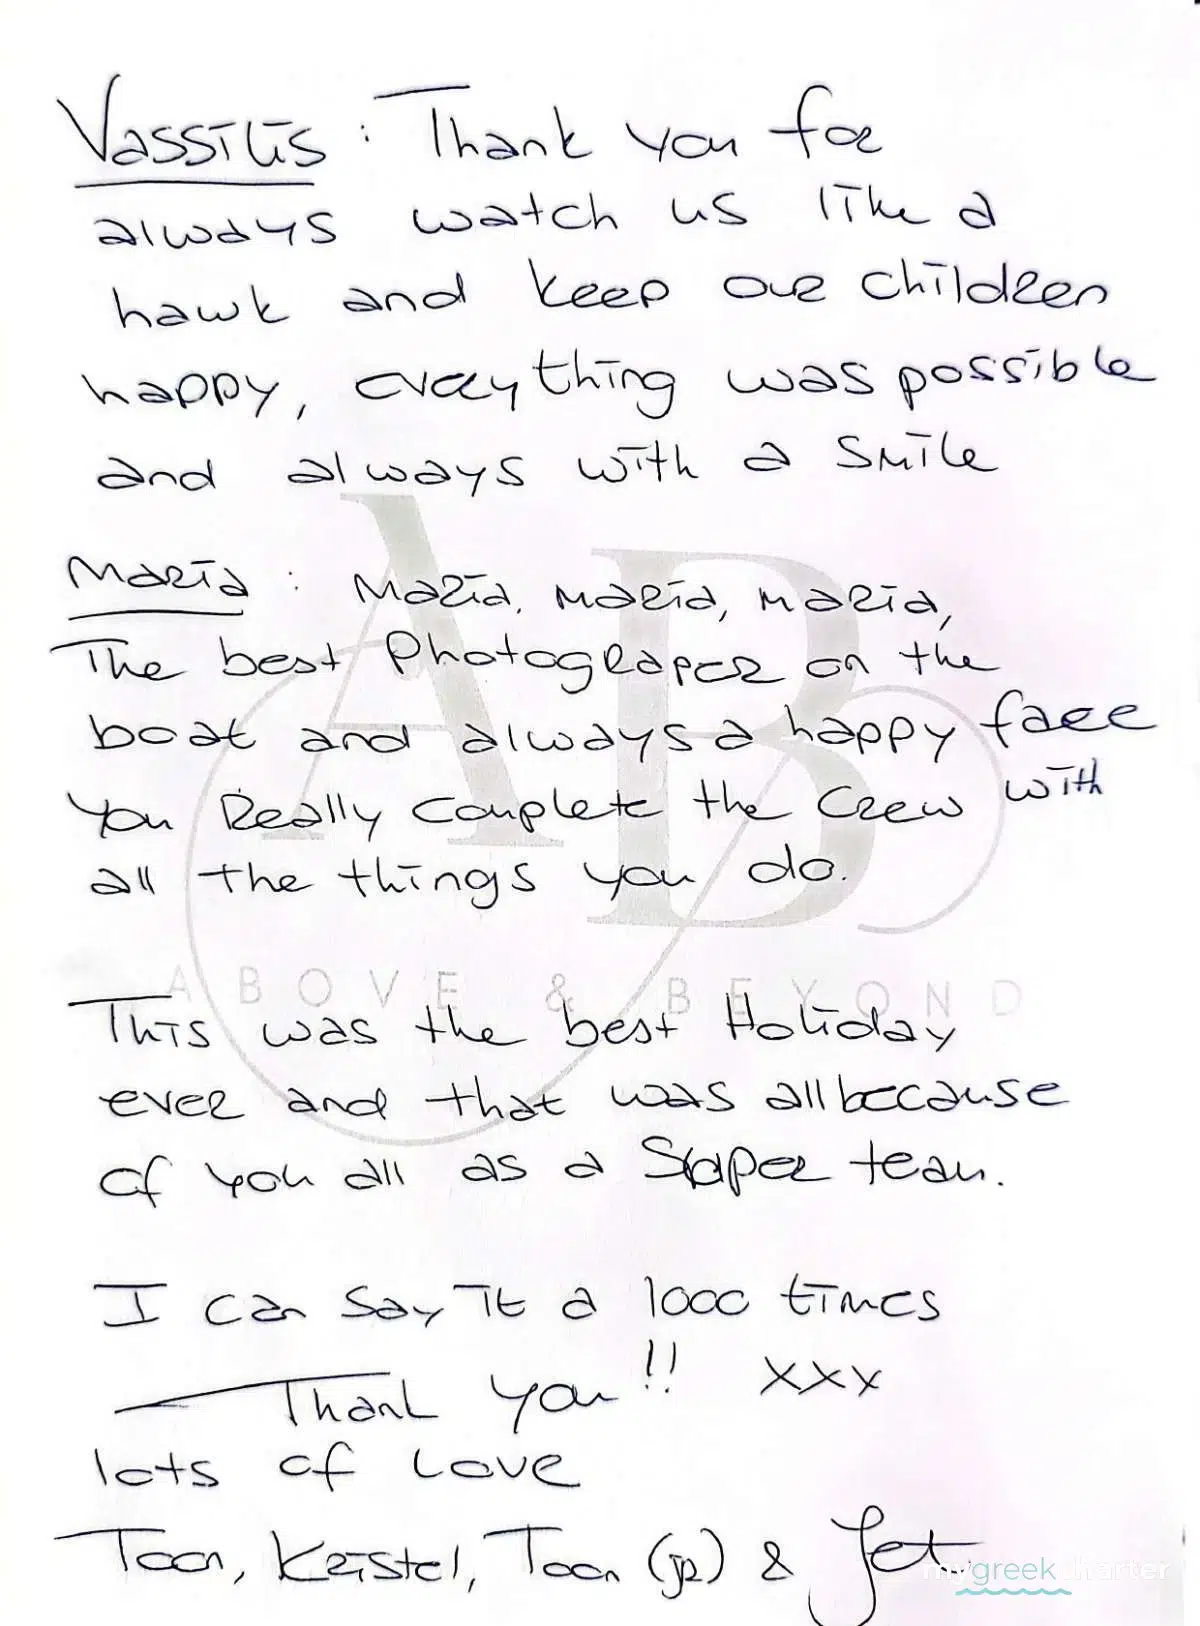 Vassilis : Thank you for
always watch us like a
hawk and keep our children
happy, everything was possible
and always with a smile
Maria : Maria, maria, maria,
The best Photograper on the
boat and always a happy face
You Really Complete the Crew with
all the things you do.
ABOVE & BEYOND
This was the best Holiday
ever and that was all because
of you all as a Super team.
I can say it a 1000 times
Thank you !! xxx
lots of Love
Toon, Kristel, Toon (jr) & Jet
AB
mygreekcharter